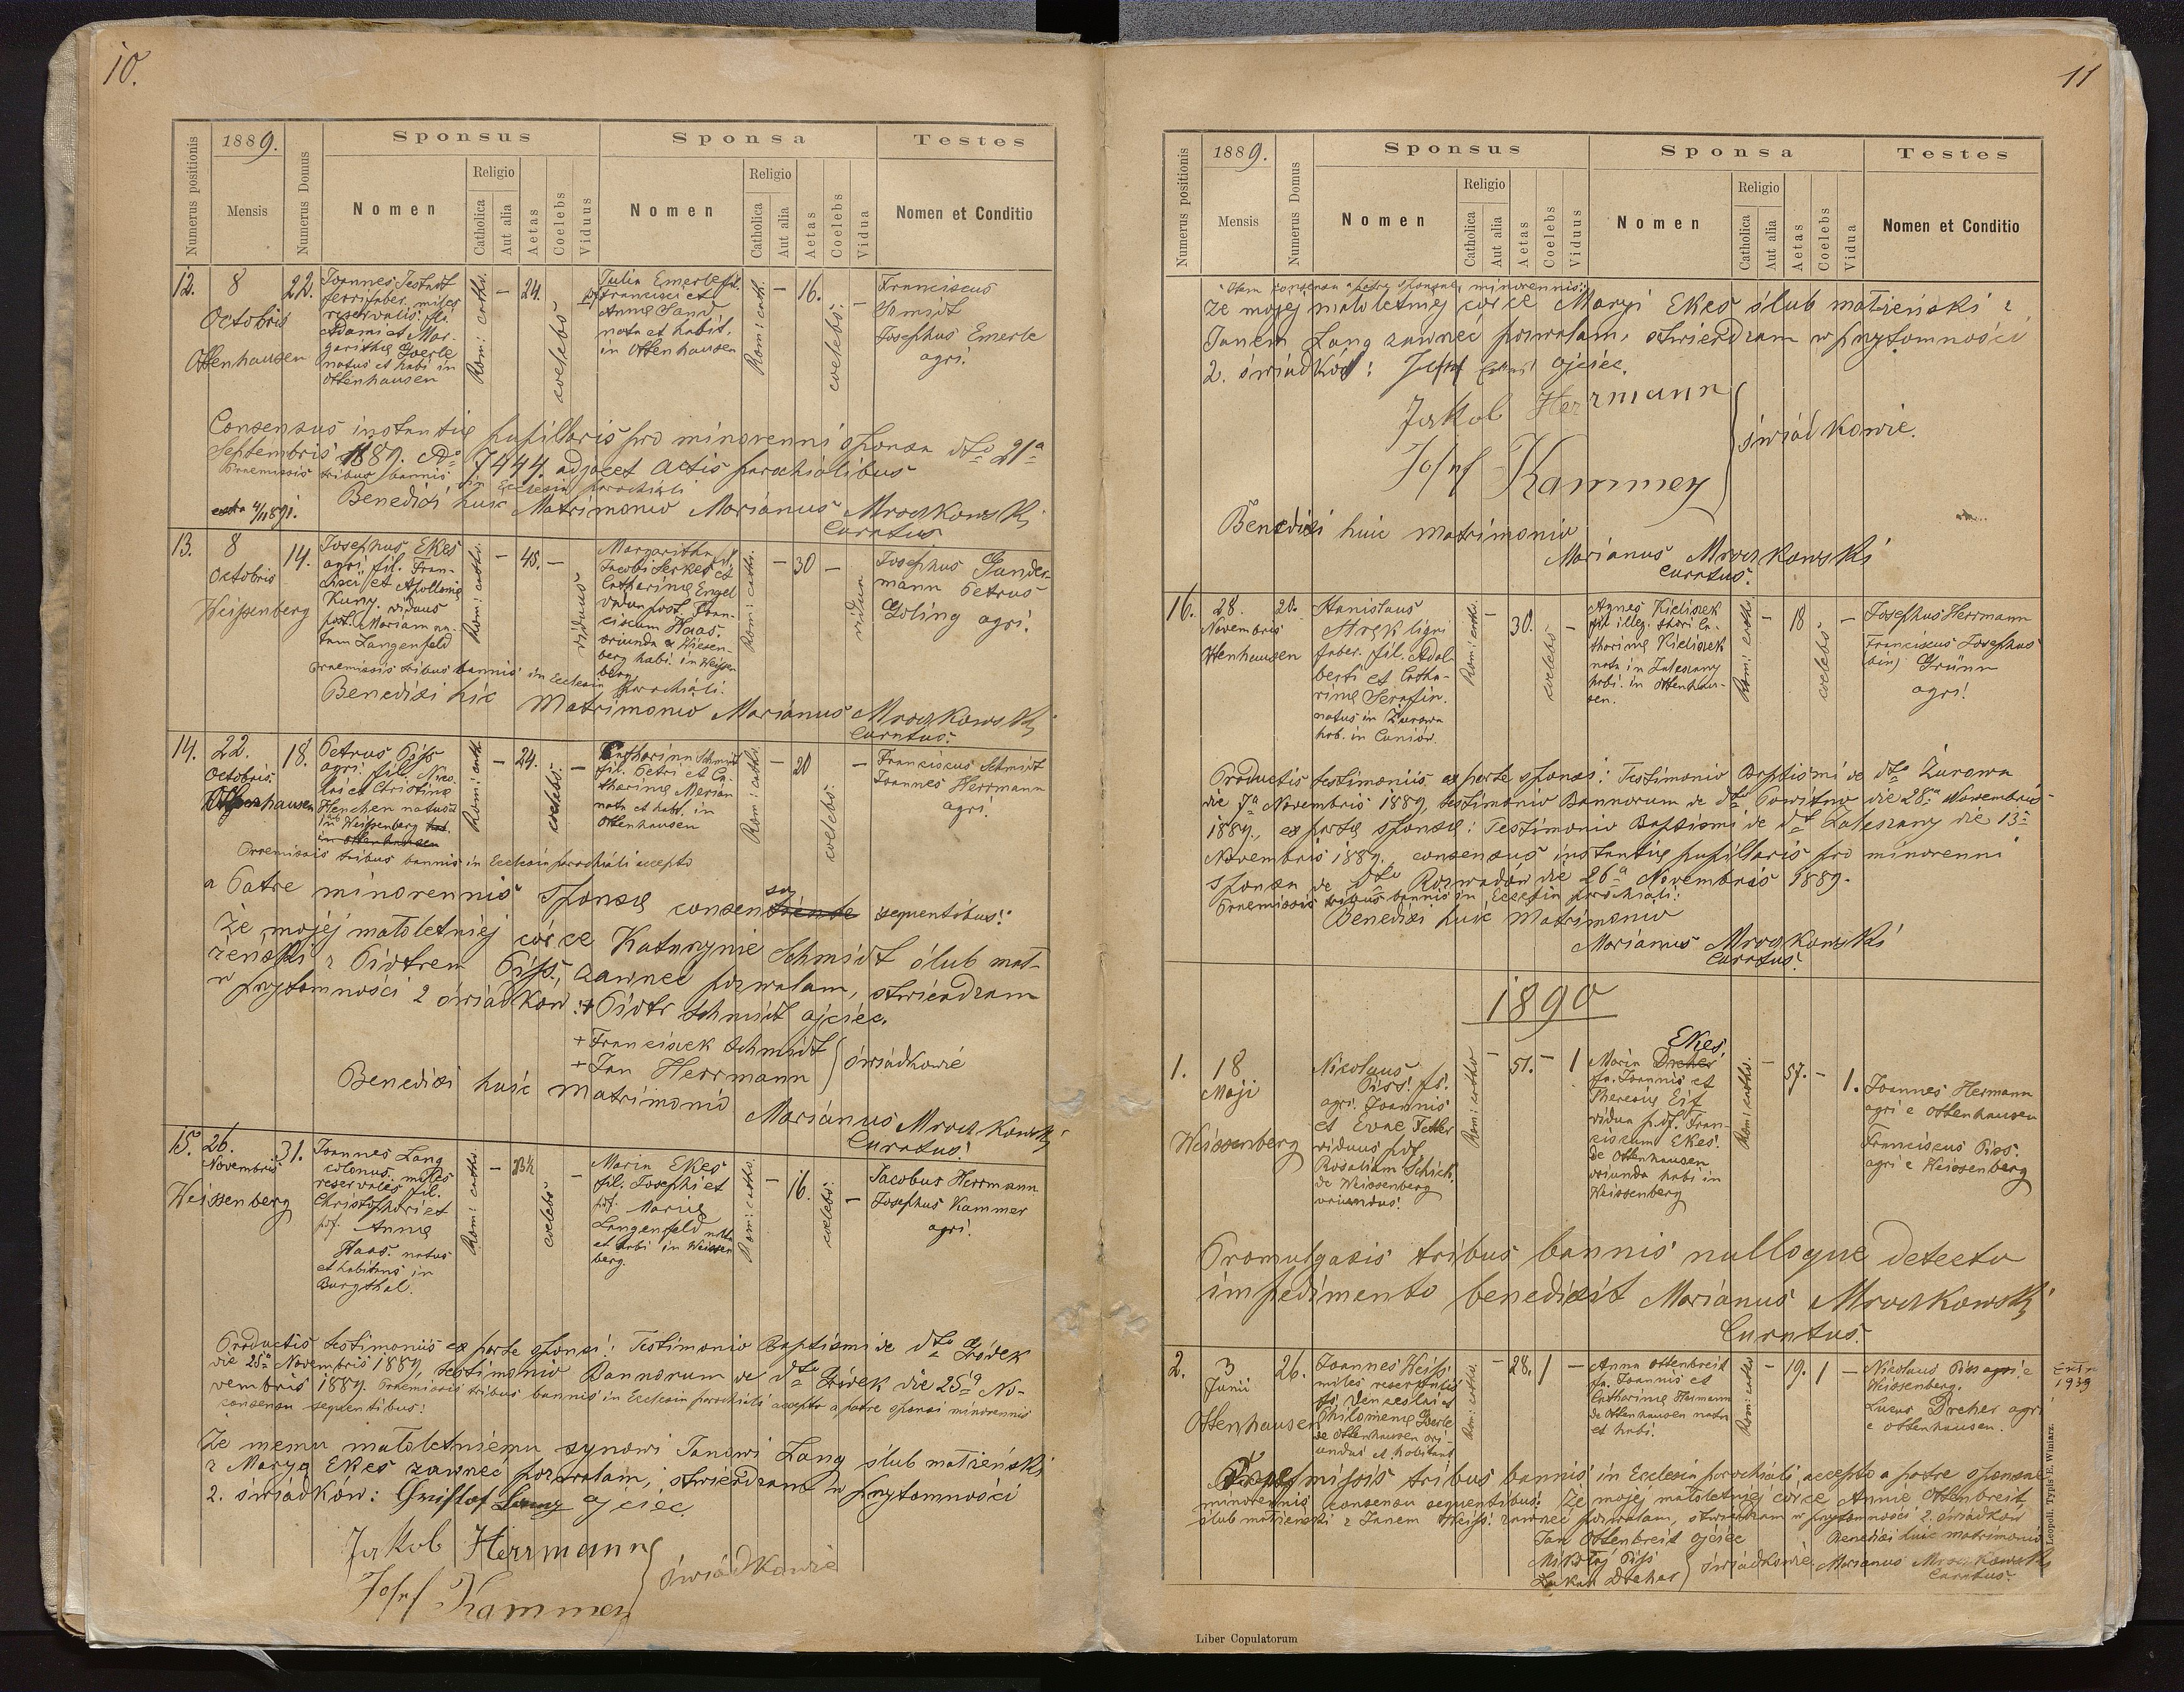 10.
Numerus positionis
1889.
Mensis
Numerus Domus
Sponsus
Nomen
Religio
Catholica
Aut alia
Aetas
Coelebs
Viduus
Sponsa
Nomen
Religio
Catholica
Aut alia
Aetas
Coelebs
Vidua
Testes
Nomen et Conditio
12.
8
Octobris
Ottenhausen
22.
Joannes
ferrifaber, miles
reservalis. fil.
Adami et Mar-
garithæ Goerle
natus et habi in
Ottenhausen
Rom: cath.
–
24.
coelebs
–
Julia Emerle fil.
Francisci et
Annæ Sand
nata et habit.
in Ottenhausen
Rom: cath.
–
16.
coelebs.
–
Franciscus
Josephus Emerle
agri.
Consensus instantiæ pupillaris pro minorenni sponsa dto 21a
Septembris 1889. No 7444 adjacet Actis parochialibus
Praemissis tribus bannis in Ecclesia parochiali
Benedixi huic Matrimonio Marianus Mroczkowski
Curatus
13.
8
Octobris
Weissenberg
14.
Josephus Ekes
agri. fil. Fran-
cisci et Apolloniæ
Kuny. viduus
post. Mariam na-
tam Langenfeld
Rom: cath.
–
45.
–
viduus
Margaritha fil.
Jacobi Serkes et
Catharinæ Engel
vidua post. Fran-
ciscum Haas.
oriunda e Wiesen-
berg habi. in Weissen
berg
Rom: cath.
–
30
–
vidua
Josephus Gunder-
mann Petrus
Goling agri.
Praemissis tribus bannis in Ecclesia parochiali.
Benedixi huic Matrimonio Marianus Mroczkowski
Curatus.
14.
22.
Octobris
Ottenhausen
18.
Petrus Piss
agri. fil. Nico-
lai et Christinæ
Henchen natus
in Weissenberg hab.
in Ottenhausen
Rom: cath.
–
24.
coelebs.
–
Catharina Schmidt
fil. Petri et Ca-
tharinæ Merian
nata et habit. in
Ottenhausen
Rom: cath.
–
20
coelebs.
–
Franciscus Schmidt
Joannes Herrmann
agri.
Praemissis tribus bannis in Ecclesia parochiali accepto
a Patre minorennis sponsæ consensu sequentibus:
Że mojej małoletniej córce Katarzynie Schmidt ślub mał-
żeński z Piotrem Piss, zawrzeć pozwalam, stwierdzam
w przytomności 2 świadków: + Piotr Schmidt ojciec.
+ Franciszek Schmidt
+ Jan Herrmann } świadkowie
Benedixi huic Matrimonio
Marianus Mroczkowski
Curatus.
15.
26.
Novembris
Weissenberg
31.
Joannes Lang
colonus. miles
reservalis fil.
Christophori et
Annæ
Haas. natus
et habitans in
Burgthal.
Rom: cath.
–
23½
coelebs
–
Maria Ekes
fil. Josephi et
Mariæ
Langenfeld nata
et habi in Weissen
berg.
Rom: cath.
–
16.
coelebs.
–
Jacobus Herrmann
Josephus Kammer
agri.
Productis testimoniis ex parte sponsi: Testimonio Baptismi de dto Gródek
die 25a Novembris 1889, testimonio Bannorum de dto Gródek die 25a No-
vembris 1889. Praemissis tribus bannis in Ecclesia parochiali accepto a patre sponsi minorennis
consensu sequentibus:
Że memu małoletniemu synowi Janowi Lang ślub małżeński
z Maryą Ekes zawrzeć pozwalam, stwierdzam w przytomności
2. świadków: Christof Lang ojciec.
Jakob Herrmann
Josef Kammer } świadkowie
11
Numerus positionis
1889.
Mensis
Numerus Domus
Sponsus
Nomen
Religio
Catholica
Aut alia
Aetas
Coelebs
Viduus
Sponsa
Nomen
Religio
Catholica
Aut alia
Aetas
Coelebs
Vidua
Testes
Nomen et Conditio
Item consensu a patre sponsæ minorennis:
Że mojej małoletniej córce Maryi Ekes ślub małżeński z
Janem Lang zawrzeć pozwalam, stwierdzam w przytomności
2. świadków: Josef ojciec.
Jakob Herrmann
Josef Kammer } świadkowie.
Benedixi huic matrimonio
Marianus Mroczkowski
Curatus.
16.
28.
Novembris
Ottenhausen
20.
Stanislaus
Strek ligni
faber. fil. Adal-
berti et Catha-
rinæ Serafin.
natus in Żurawa
hab. in Cuniów.
Rom: cath.
–
30.
coelebs
–
Agnes Kielisek
fil illeg. thori Ca-
tharinæ Kielisek
nata in Zaleszany
habi. in Ottenhau-
sen.
Rom: cath.
–
18
coelebs
–
Josephus Herrmann
Franciscus Josephus
(bin) Grünn
agri.
Productis testimoniis ex parte sponsi: Testimonio Baptismi de dto Żurawa
die 7a Novembris 1889, testimonio Bannorum de dto Powitno die 28a Novembris
1889., ex parte sponsæ: Testimonio Baptismi de dto Zaleszany die 13a
Novembris 1889., consensus instantiæ pupillaris pro minorenni
sponsa de dto Rozwadów die 26a Novembris 1889.
Praemissis tribus bannis in Ecclesia parochiali.
Benedixi huic Matrimonio
Marianus Mroczkowski
Curatus.
1890
1.
18
Maji
Weissenberg
Nicolaus
Piss. fs.
agri. Joannis
et Evae Fetter
viduus pdf.
Rosaliam Schich.
de Weissenberg
oriundus.
Rom: cath.
–
51.
–
1
Ekes.
Maria Dreher
fa. Joannis et
Theresiæ Eif
vidua pdf. Fran-
ciscum Ekes.
de Ottenhausen
oriunda habi in
Weissenberg
Rom: cath.
–
57.
–
1.
Joannes Hermann
agri e Ottenhausen
Franciscus Piss.
agri e Weissenberg
Promulgatis tribus bannis nulloque detecto
impedimento benedixit Marianus Mroczkowski
Curatus.
2.
3
Junii
Ottenhausen
26.
Joannes Weiss.
miles reservalis
fs. Venceslai et
Philomenæ Goerle
de Ottenhausen ori-
undus et habitans
Rom: cath.
–
28.
1
–
Anna Ottenbreit
fa. Joannis et
Catharinæ Hermann
de Ottenhausen nata
et habi.
Rom: cath.
–
19.
1
–
Nicolaus Piss agri e
Weissenberg.
Lucas Dreher agri
e Ottenhausen.
1939
Praemissis tribus bannis in Ecclesia parochiali, accepto a patre sponsæ
minorennis consensu sequentibus: Że mojej małoletniej córce Annie Ottenbreit
ślub małżeński z Janem Weiss. zawrzeć pozwalam, stwierdzam w przytomności 2. świadków
Jan Ottenbreit ojciec
Mikołaj Piss
Łukasz Dreher } świadkowie.
Benedixi huic matrimonio
Marianus Mroczkowski
Curatus.
Leopoli. Typis E. Winiarz.
Liber Copulatorum